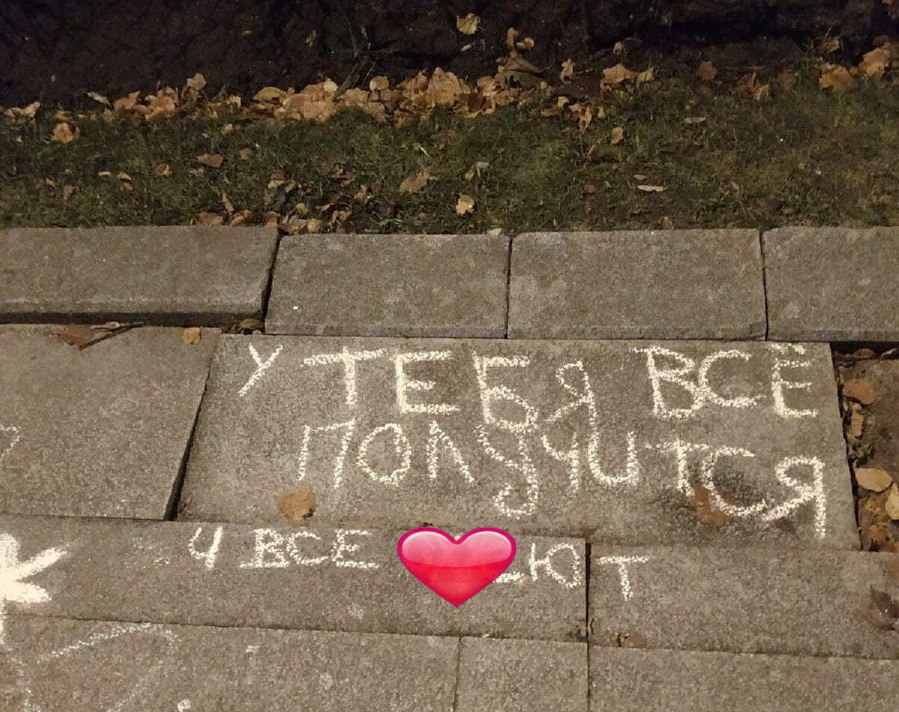 У ТЕБЯ ВСЁ
ПОЛУЧИТСЯ
И ВСЕ